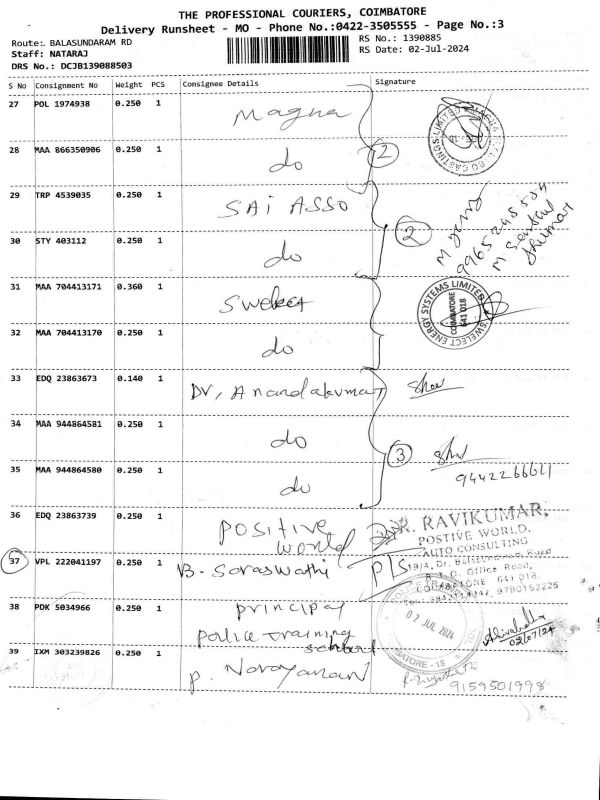 THE PROFESSIONAL COURIERS, COIMBATORE
Delivery Runsheet - MO - Phone No.:0422-3505555 - Page No.:3
Route: BALASUNDARAM RD
RS No.: 1390885
Staff: NATARAJ
RS Date: 02-Jul-2024
DRS No.: DCJB139088503
S No Consignment No Weight PCS Consignee Details Signature
27 POL 1974938 0.250 1 Magna
28 MAA 866350906 0.250 1 do
2
29 TRP 4539035 0.250 1 SAI ASSO
9965245554
M
30 STY 403112 0.250 1 do
2
31 MAA 704413171 0.360 1 Swelect
SWELECT ENERGY SYSTEMS LIMITED
COIMBATORE
641 018
32 MAA 704413170 0.250 1 do
33 EDQ 23863673 0.140 1 Dr, Anandakumar
34 MAA 944864581 0.250 1 do
3
9442266611
35 MAA 944864580 0.250 1 do
36 EDQ 23863739 0.250 1 Positive
world
R. RAVIKUMAR,
POSTIVE WORLD.
AUTO CONSULTING
37 VPL 222041197 0.250 1 B. Saraswathi
Office Road,
COIMBATORE 641 018.
38 PDK 5034966 0.250 1 principal
police training
school
02 JUL 2024
02/07/24
39 IXM 303239826 0.250 1 P. Narayanan
9159501998